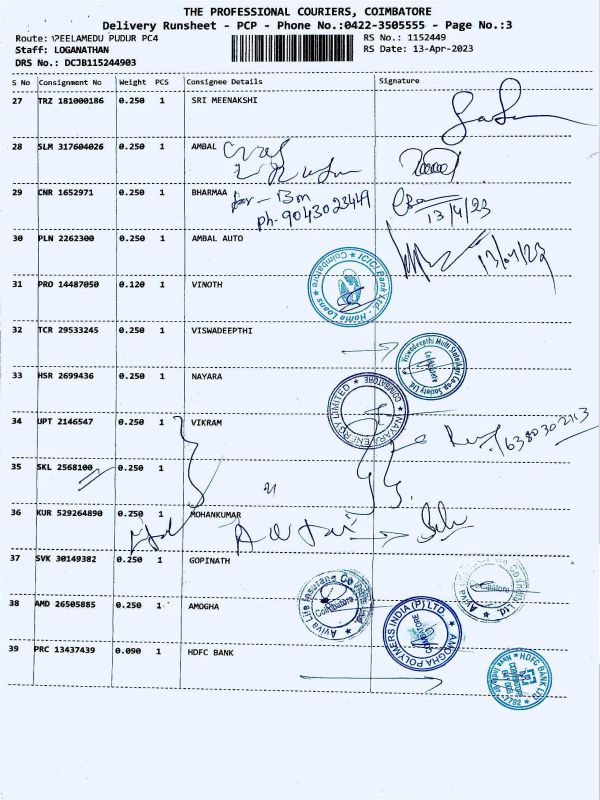 THE PROFESSIONAL COURIERS, COIMBATORE
Delivery Runsheet - PCP - Phone No.:0422-3505555 - Page No.:3
Route: PEELAMEDU PUDUR PC4 RS No.: 1152449
Staff: LOGANATHAN RS Date: 13-Apr-2023
DRS No.: DCJB115244903
S No Consignment No Weight PCS Consignee Details Signature
27 TRZ 181000186 0.250 1 SRI MEENAKSHI
28 SLM 317604026 0.250 1 AMBAL
29 CNR 1652971 0.250 1 BHARMAA
ph-9043023449
13/4/23
30 PLN 2262300 0.250 1 AMBAL AUTO
13/04/23
31 PRO 14487050 0.120 1 VINOTH
ICICI Bank Ltd. - Home Loans
Coimbatore
32 TCR 29533245 0.250 1 VISWADEEPTHI
Viswadeepthi Multi State Agri Co-op. Society Ltd
Coimbatore
33 HSR 2699436 0.250 1 NAYARA
NAYARA ENERGY LIMITED
COIMBATORE
34 UPT 2146547 0.250 1 VIKRAM
35 SKL 2568100 0.250 1
36 KUR 529264890 0.250 1 MOHANKUMAR
37 SVK 30149382 0.250 1 GOPINATH
Aviva Life Insurance Co India Ltd
Coimbatore
Co India Ltd.
Coimbatore
38 AMD 26505885 0.250 1 AMOGHA
AMOGHA POLYMERS INDIA (P) LTD
COIMBATORE
39 PRC 13437439 0.090 1 HDFC BANK
HDFC BANK LTD